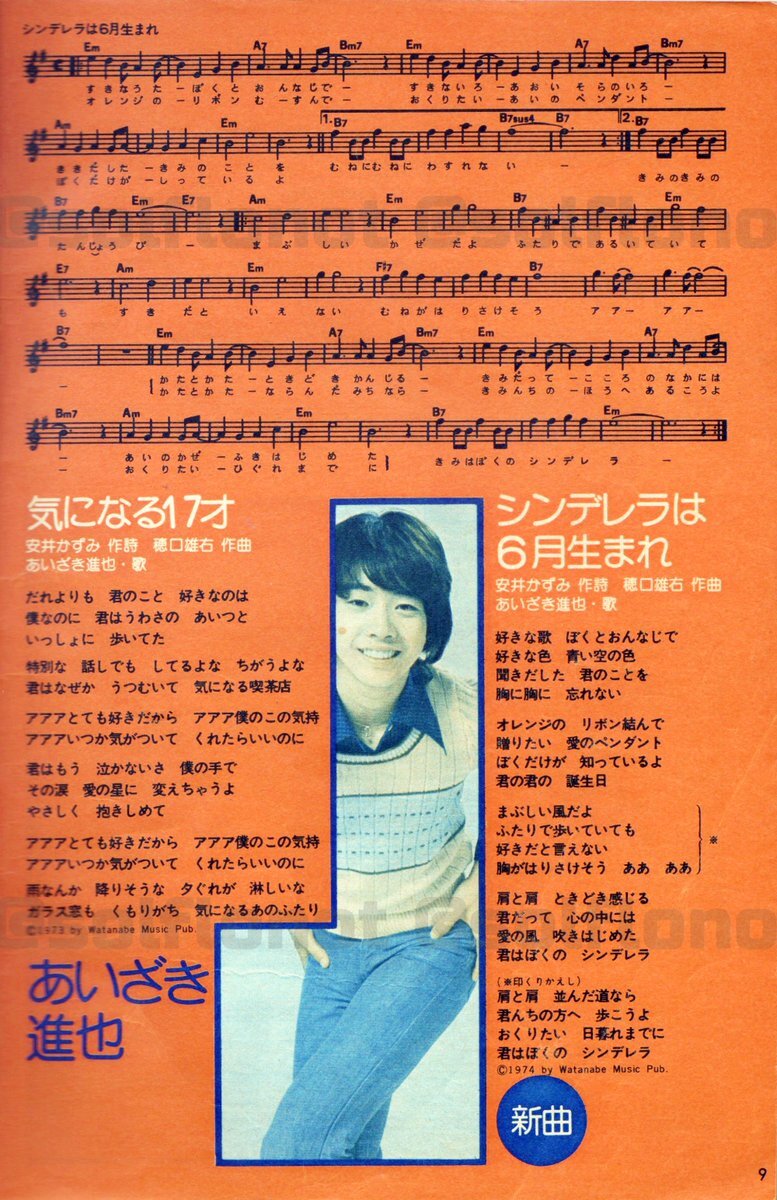 シンデレラは6月生まれ
Em A7 Bm7 Em A7 Bm7
すきなうた ー ぼくと おんなじで ー すきないろ ー あおい そらのいろ ー
オレンジの ー リボン むーすんで ー おくりたい ー あいの ペンダント ー
Am Em 1. B7 B7sus4 B7 2. B7
ききだした ー きみの ことを むねにむねに わすれない ー
ぼくだけが ー しっているよ きみのきみの
B7 Em E7 Am Em B7
たんじょうび ー まぶしい かぜだよ ふたりであるいていて
E7 Am Em F#7 B7
も すきだと いえない むねがはりさけそう アアー アアー
B7 Em A7 Bm7 Em A7
ー かたとかた ー ときどき かんじる ー きみだって ー こころ のなかには
かたとかた ー ならんだみちなら ー きみんちの ー ほうへ あるこうよ
Bm7 Am Em B7 Em
ー あいのかぜ ー ふきはじめた きみはぼくの シンデレラ ー
ー おくりたい ー ひぐれまでに
気になる17才
安井かずみ 作詩 穂口雄右 作曲
あいざき進也・歌
だれよりも 君のこと 好きなのは
僕なのに 君はうわさの あいつと
いっしょに 歩いてた
特別な 話しでも してるよな ちがうよな
君はなぜか うつむいて 気になる喫茶店
アアアとても好きだから アアア僕のこの気持
アアアいつか気がついて くれたらいいのに
君はもう 泣かないさ 僕の手で
その涙 愛の星に 変えちゃうよ
やさしく 抱きしめて
アアアとても好きだから アアア僕のこの気持
アアアいつか気がついて くれたらいいのに
雨なんか 降りそうな 夕ぐれが 淋しいな
ガラス窓も くもりがち 気になるあのふたり
©1973 by Watanabe Music Pub.
あいざき
進也
シンデレラは
6月生まれ
安井かずみ 作詩 穂口雄右 作曲
あいざき進也・歌
好きな歌 ぼくとおんなじで
好きな色 青い空の色
聞きだした 君のことを
胸に胸に 忘れない
オレンジの リボン結んで
贈りたい 愛のペンダント
ぼくだけが 知っているよ
君の君の 誕生日
まぶしい風だよ
ふたりで歩いていても
好きだと言えない
胸がはりさけそう ああ ああ
※
肩と肩 ときどき感じる
君だって 心の中には
愛の風 吹きはじめた
君はぼくの シンデレラ
(※印くりかえし)
肩と肩 並んだ道なら
君んちの方へ 歩こうよ
おくりたい 日暮れまでに
君はぼくの シンデレラ
©1974 by Watanabe Music Pub.
新曲
9